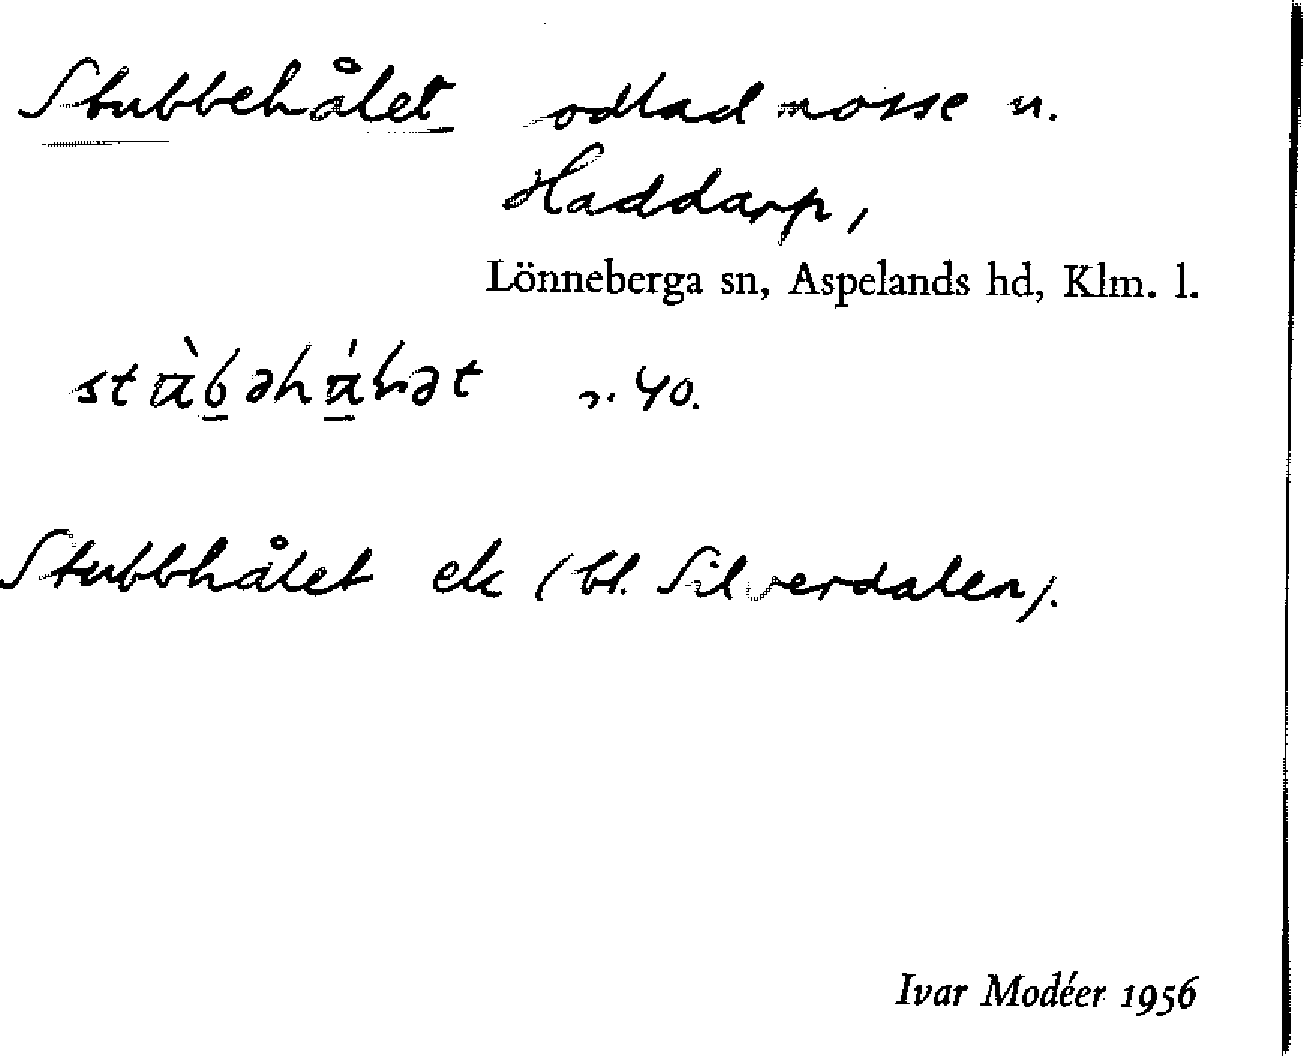 Stubbehålet odlad mosse u.
Haddarp,
Lönneberga sn, Aspelands hd, Klm. l.
40.
Stubbhålet ek (bl. Silverdalen).
Ivar Modéer 1956